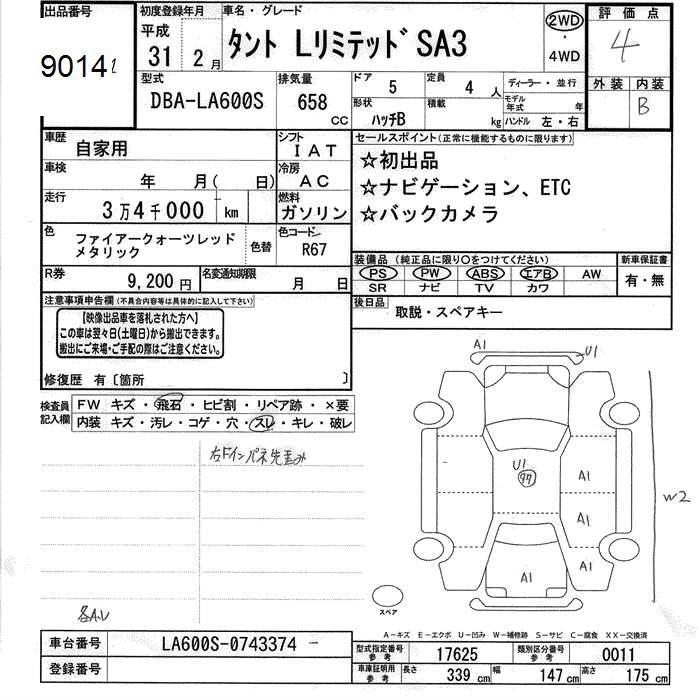 出品番号
9014
初度登録年月
平成
31年 2月
車名・グレード
タント LリミテッドSA3
2WD
・
4WD
評価点
4
外装 内装
B
型式
DBA-LA600S
排気量
658 CC
ドア 5
定員 4 人
形状 ハッチB
積載 kg
ディーラー・並行
モデル年式 年
ハンドル 左・右
車歴 自家用
シフト IAT
車検 年 月( 日)
冷房 AC
走行 3万4千000 km
燃料 ガソリン
色 ファイアークォーツレッド
メタリック
色替
色コード R67
R券 9,200円
名変通知期限 月 日
セールスポイント(正常に機能するものに限ります)
☆初出品
☆ナビゲーション、ETC
☆バックカメラ
装備品 (純正品に限り○をつけてください)
PS PW ABS エアB AW
SR ナビ TV カワ
新車保証書
有・無
後日品 取説・スペアキー
注意事項申告欄(不具合内容等は具体的に記入して下さい)
【映像出品車を落札された方へ】
この車は翌々日(土曜日)から搬出できます。
搬出にご来場・ご手配の際はご注意ください。
修復歴 有〔箇所 〕
検査員記入欄
FW キズ・飛石・ヒビ割・リペア跡・×要
内装 キズ・汚レ・コゲ・穴・スレ・キレ・破レ
右Fインパネ先歪み
各A.U
A1
U1
U1
A1
A1
A1
A1
W2
スペア
A-キズ E-エクボ U-凹み W-補修跡 S-サビ C-腐食 XX-交換済
車台番号 LA600S-0743374
登録番号
型式指定番号参考 17625
類別区分番号参考 0011
車庫証明用参考 長さ 339 cm 幅 147 cm 高さ 175 cm